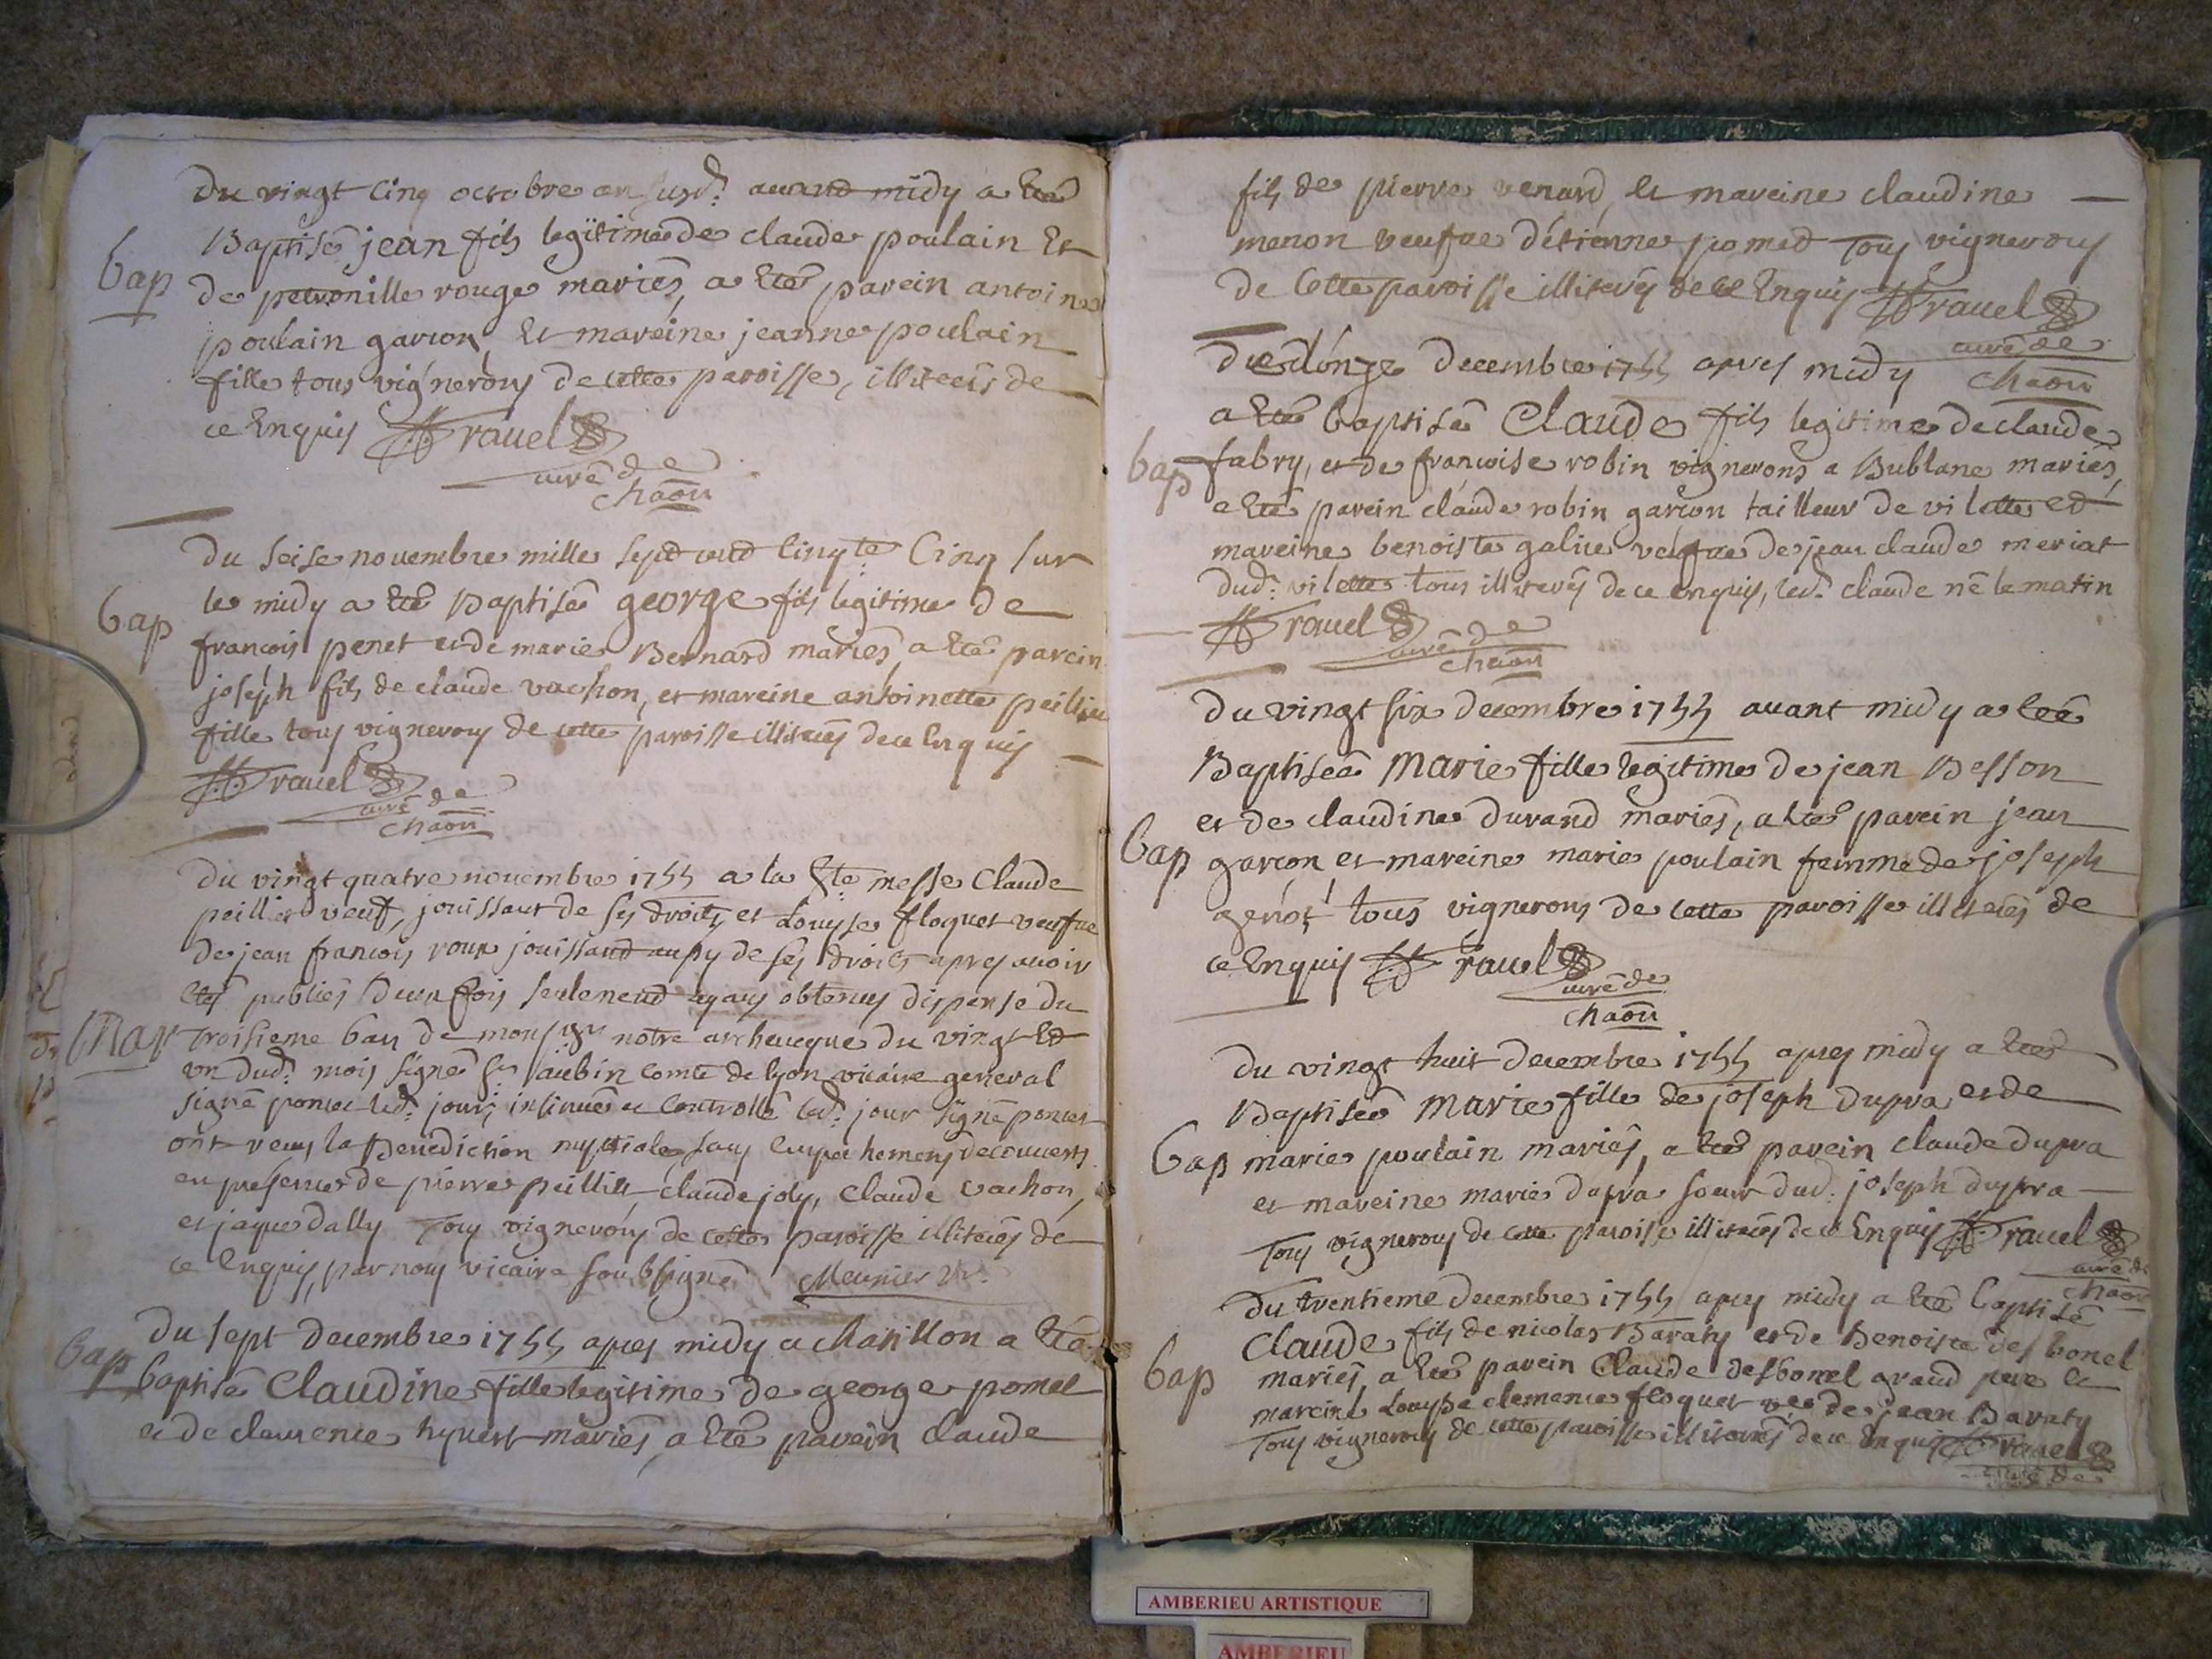 Du vingt cinq octobre an susd. auand midy a Eté
Bap
Baptisé jean fils legitime de claude poulain Et
de petronille rouge mariés, a Eté parein antoine
poulain garcon, Et mareine jeanne poulain
fille tous vignerons de cette paroisse, illiterés de
ce Enquis Ravel
curé de
chaōn
du seise novembre mille sept cend cinq.te Cinq sur
Bap
le midy a Eté Baptisé george fils legitime de
francois penet et de marie Bernard mariés, a Eté parein
joseph fils de claude vachon, et mareine antoinette peillieu
fille tous vignerons de cette paroisse illiterés de ce Enquis
Ravel
curé de
chaōn
du vingt quatre novembre 1755 a la Ste messe Claude
peillieu veuf, jouissant de ses droits, et Louyse floquet veufue
de jean francois roux jouissand aussy de ses droits apres auoir
Etés publiés deux fois seulemend ayans obtenus dispense du
Mar
troisieme ban de mons.gr notre archeveque du vingt Et
un dud. mois signé St aubin comte de lyon vicaire general
signé poncet led. jour, insinué et controllé led. jour signé poncet
ont receu la Benediction nuptiale, sans empechemens decouverts
en presence de pierre peillieu, claude joly, claude vachon,
et jaque dally tous vignerons de cette paroisse illiterés de
ce Enquis, par nous vicaire soubsigné Meunier vic.
Du sept decembre 1755 apres midy a chatillon a Eté
Bap
baptisé Claudine fille legitime de george pomet
et de clemence hyvert mariés, a Eté parein claude
fils de pierre venard, Et mareine claudine
menon veufue d'étienne pomed tous vignerons
de Cette paroisse illiterés de ce Enquis Ravel
curé de
chaōn
Du onze decembre 1755 apres midy
a Eté baptisé Claude fils legitime de claude
Bap
fabry, et de francoise robin vignerons a Bublane mariés,
a Eté parein claude robin garcon tailleur de vilette ed
mareine benoiste galice veufue de jean claude meriat
dud. vilette tous illiterés de ce enquis, led. claude né le matin
Ravel
curé de
chaōn
Du vingt six decembre 1755 auant midy a Eté
Baptiseé Marie fille legitime de jean Besson
et de claudine durand mariés, a Eté parein jean
Bap
garcon et mareine marie poulain femme de joseph
genot tous vignerons de cette paroisse illiterés de
ce Enquis Ravel
curé de
chaōn
Du vingt huit decembre 1755 apres midy a Eté
Baptiseé Marie fille de joseph dupra et de
Bap
marie poulain mariés, a Eté parein claude dupra
et mareine marie dupra soeur dud. joseph dupra
tous vignerons de cette paroisse illiterés de ce Enquis Ravel
curé de
chaōn
Du trentieme decembre 1755 apres midy a Eté baptisé
Claude fils de nicolas Baraty et de Benoiste desbonel
Bap
mariés, a Eté parein Claude desbonel grand pere et
mareine Louyse clemence floquet vee de jean Baraty
tous vignerons de cette paroisse illiterés de ce Enquis Ravel
curé de
AMBERIEU ARTISTIQUE
AMBERIEU